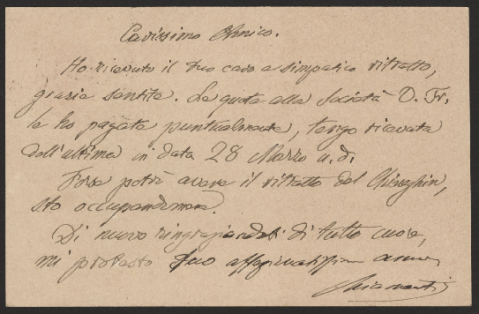 Carissimo Amico.
Ho ricevuto il tuo caro e simpatico ritratto,
grazie sentite. La quota alla Società D. Fr.
la ho pagata puntualmente, tengo ricevuta
dell'ultima in data 28 Marzo a. d.
Forse potrò avere il ritratto del
sto occupandomene.
Di nuovo ringraziandoti di tutto cuore,
mi protesto tuo affezionatissimo amico